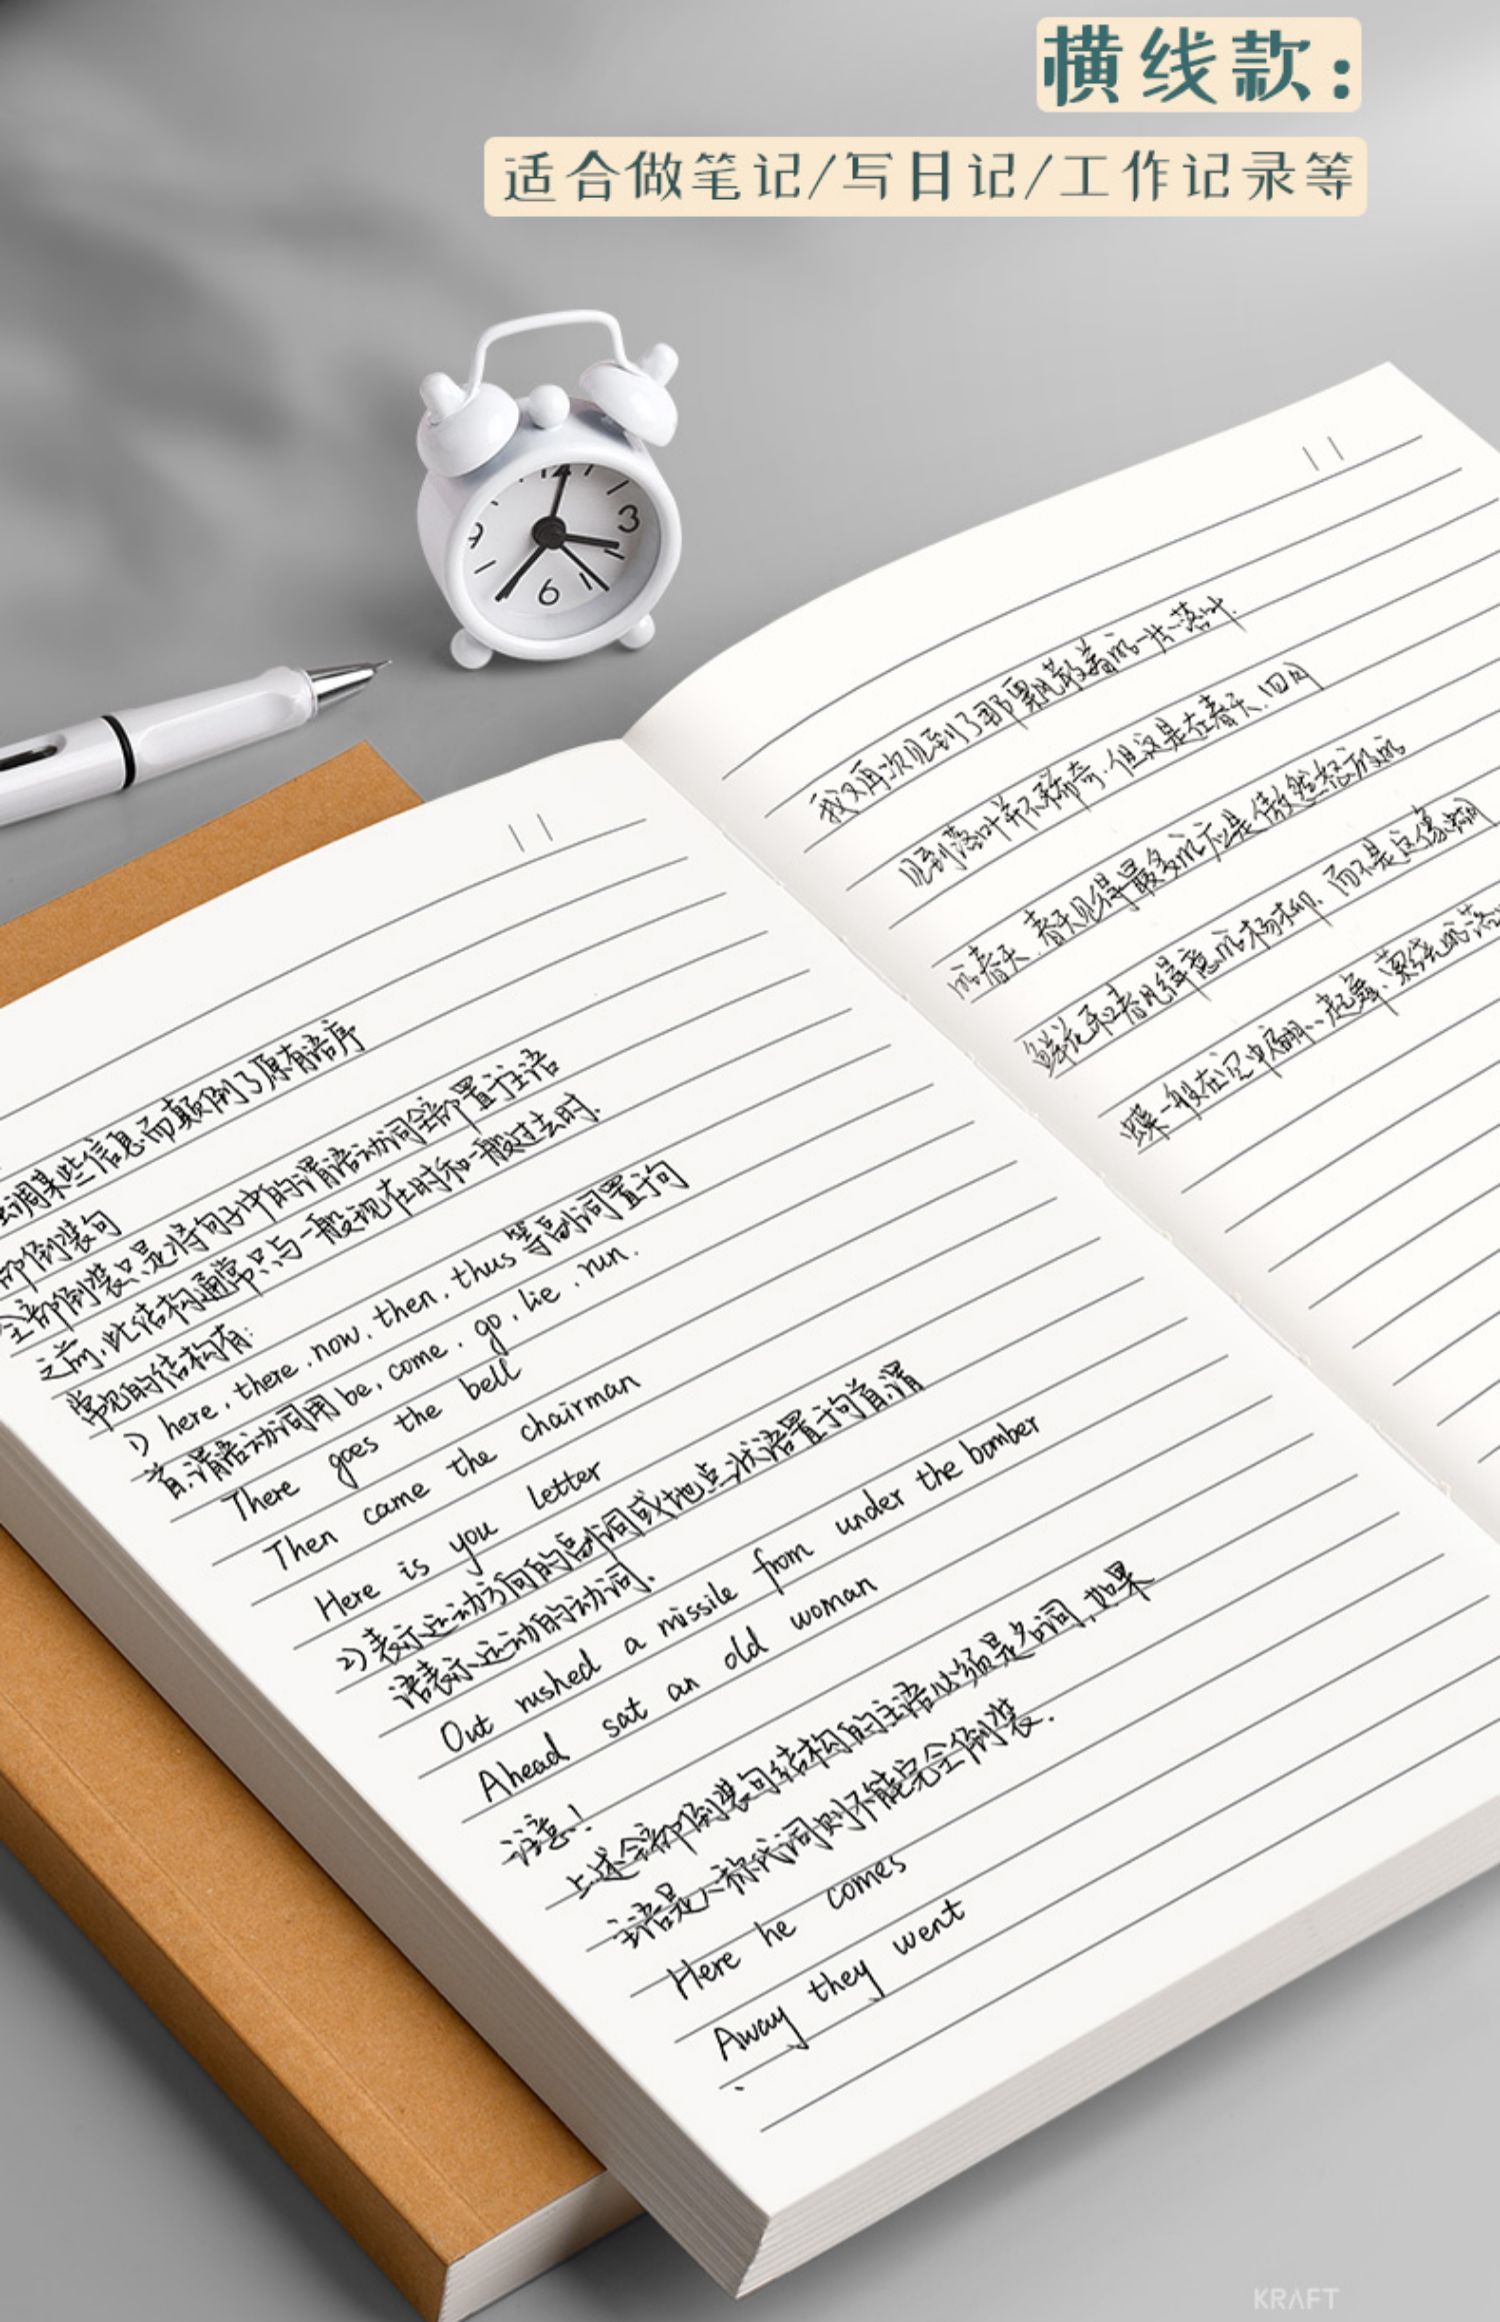 横线款：
适合做笔记/写日记/工作记录等
12
3
6
9
调某些信息而颠倒了原有语序
部倒装句
全部倒装只是将句子中的谓语动词全部置于主语
之前,此结构通常只与一般现在时和一般过去时.
常见的结构有:
1) here, there, now, then, thus等副词置于句
首,谓语动词用be, come, go, lie, run.
There goes the bell
Then came the chairman
Here is you letter
2)表示运动方向的副词或地点状语置于句首,谓
语表示运动的动词.
Out rushed a missile from under the bomber
Ahead sat an old woman
注意!
上述全部倒装句结构的主语必须是名词,如果
主语是人称代词则不能完全倒装.
Here he comes
Away they went
我又再次见到了那飘散着的一片落叶.
见到落叶并不稀奇.但这是在春天.四月
的春天.春天见得最多的应是傲然怒放的
鲜花和春风得意的杨柳.而不是这像蝴
蝶一般在空中翩翩起舞、萦绕的落
KRAFT